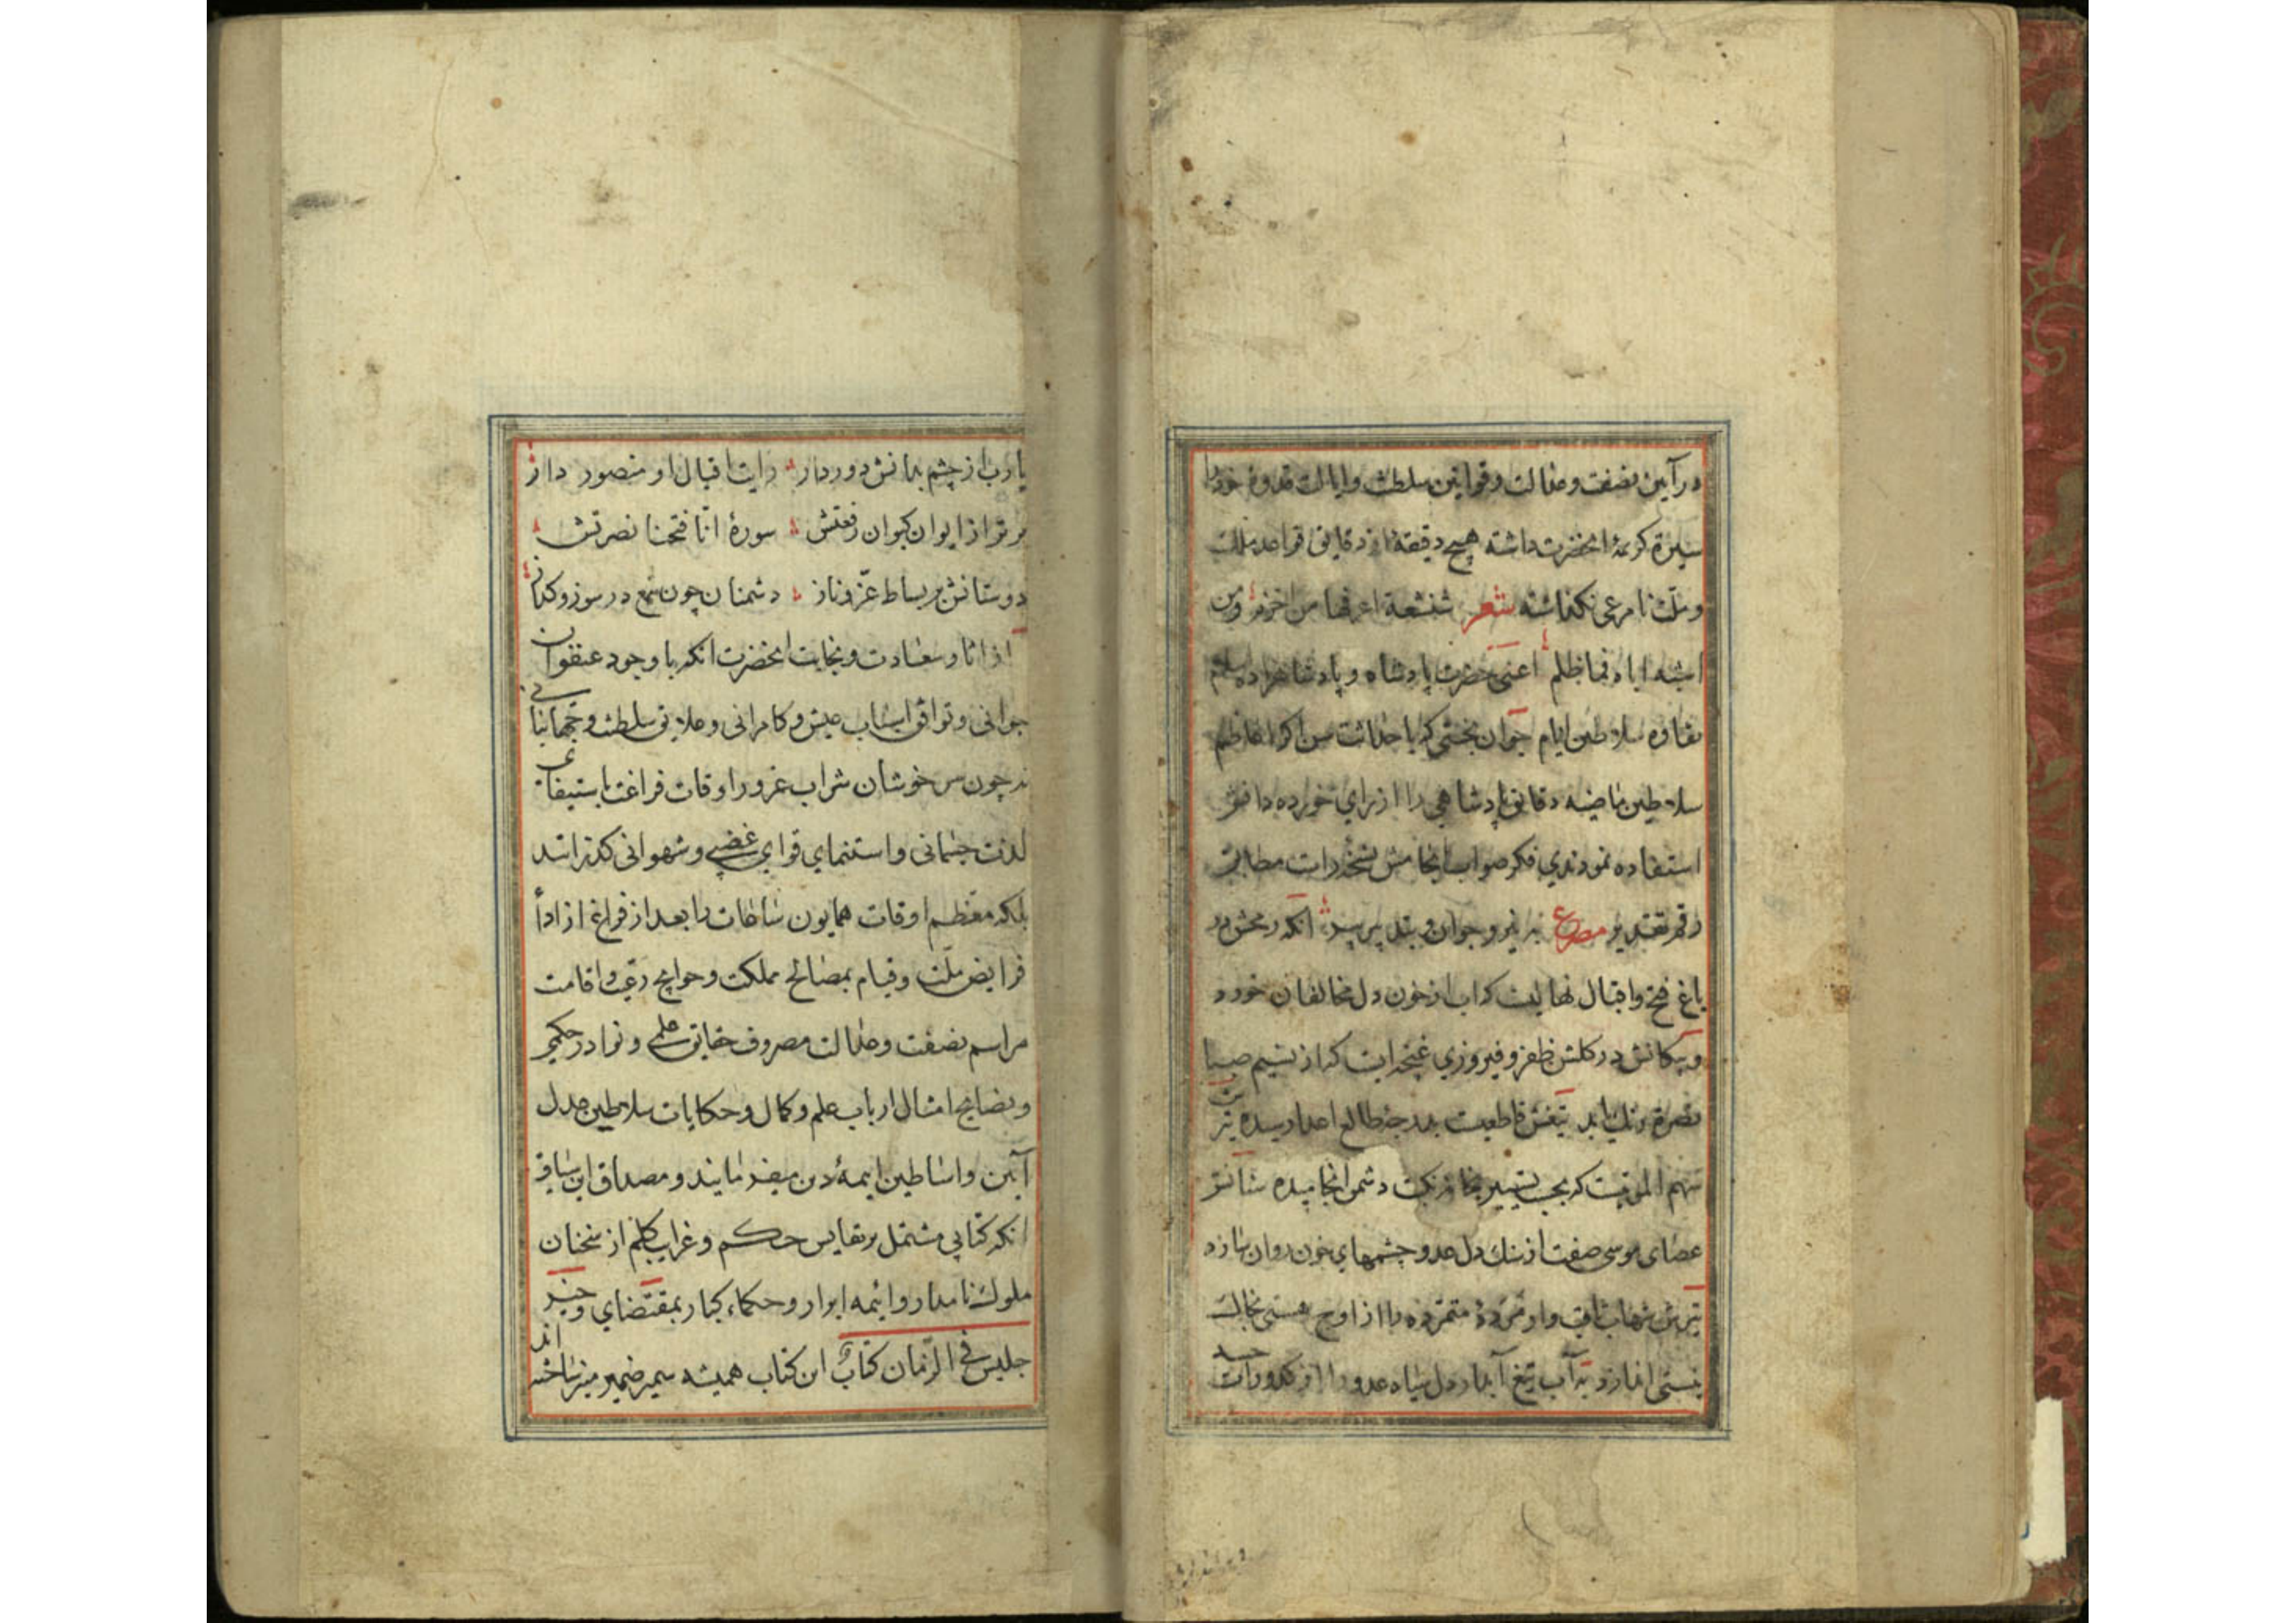 در آیین نصفت و عدالت و قوانین سلطنت و ایالت قدوهٔ خود را
سیرة کریمهٔ انحضرت داشته هیچ دقیقهٔ از دقایق قواعد ملک
و ملت نامرعی نکذاشته شعر شنشنة اعرفها من اخزم ومن
اشبه اباه فما ظلم اعنی حضرت پادشاه و پادشاهزاده
نقاوه سلاطین ایام جوان بختی که با حداثت سن اکر اعاظم
سلاطین ماضیه دقایق پادشاهی را از رای خورده دانش
استفاده نمودندی فکر صواب انجامش نسخه ایست مطابق
رقم تقدیر مصرع به نیرو جوان و بتدبیر پیر انکه رمحش در
باغ فتح و اقبال نهالیست که اب از خون دل مخالفان خورد
و پیکانش در کلشن ظفر و فیروزی غنچه ایست که از نسیم صبا
نصرة تیغش قاطعیست بدرجهٔ طالع اعدا رسیده تیر
سهم که دشمن انجامیده
عصای موسی صفت از سنک دل عدو چشمهای خون روان سازد
شهاب ثاقب وار مردهٔ متمرده را از اوج هستی بخاک
نیستی اندازد به آب تیغ آبدار دل سیاه عدو را از کدورات
یارب از چشم بدانش دور دار رایت اقبال او منصور دار
برتر از ایوان کیوان رفعتش سورهٔ انّا فتحنا نصرتش
دوستانش بر بساط عزّ و ناز دشمنان چون شمع در سوز و کداز
از اثار سعادت و نجابت انحضرت انکه با وجود عنفوان
جوانی و توافق اسباب عیش و کامرانی و علایق سلطنت و جهانبانی
نه چون سرخوشان شراب غرور اوقات فراغت باستیفای
لذت جسمانی و استنمای قوای غضبی و شهوانی کذرانند
بلکه معظم اوقات همایون ساعات را بعد از فراغ از ادأ
فرایض ملّت و قیام بمصالح مملکت و حوایج رعیت و اقامت
مراسم نصفت و عدالت مصروف حقایق علمی و نوادر حکمی
و نصایح امثال ارباب علم و کمال و حکایات سلاطین عدل
آیین و اساطین ایمهٔ دین میفرمایند و مصداق این سیاق
انکه کتابی مشتمل بر نفایس حکم و غرایب کلم از سخنان
ملوک نامدار و ائمه ابرار و حکماء کبار بمقتضای و خیر
جلیس فی الزّمان کتابٌ این کتاب همیشه سمیر ضمیر منیر ساخته اند